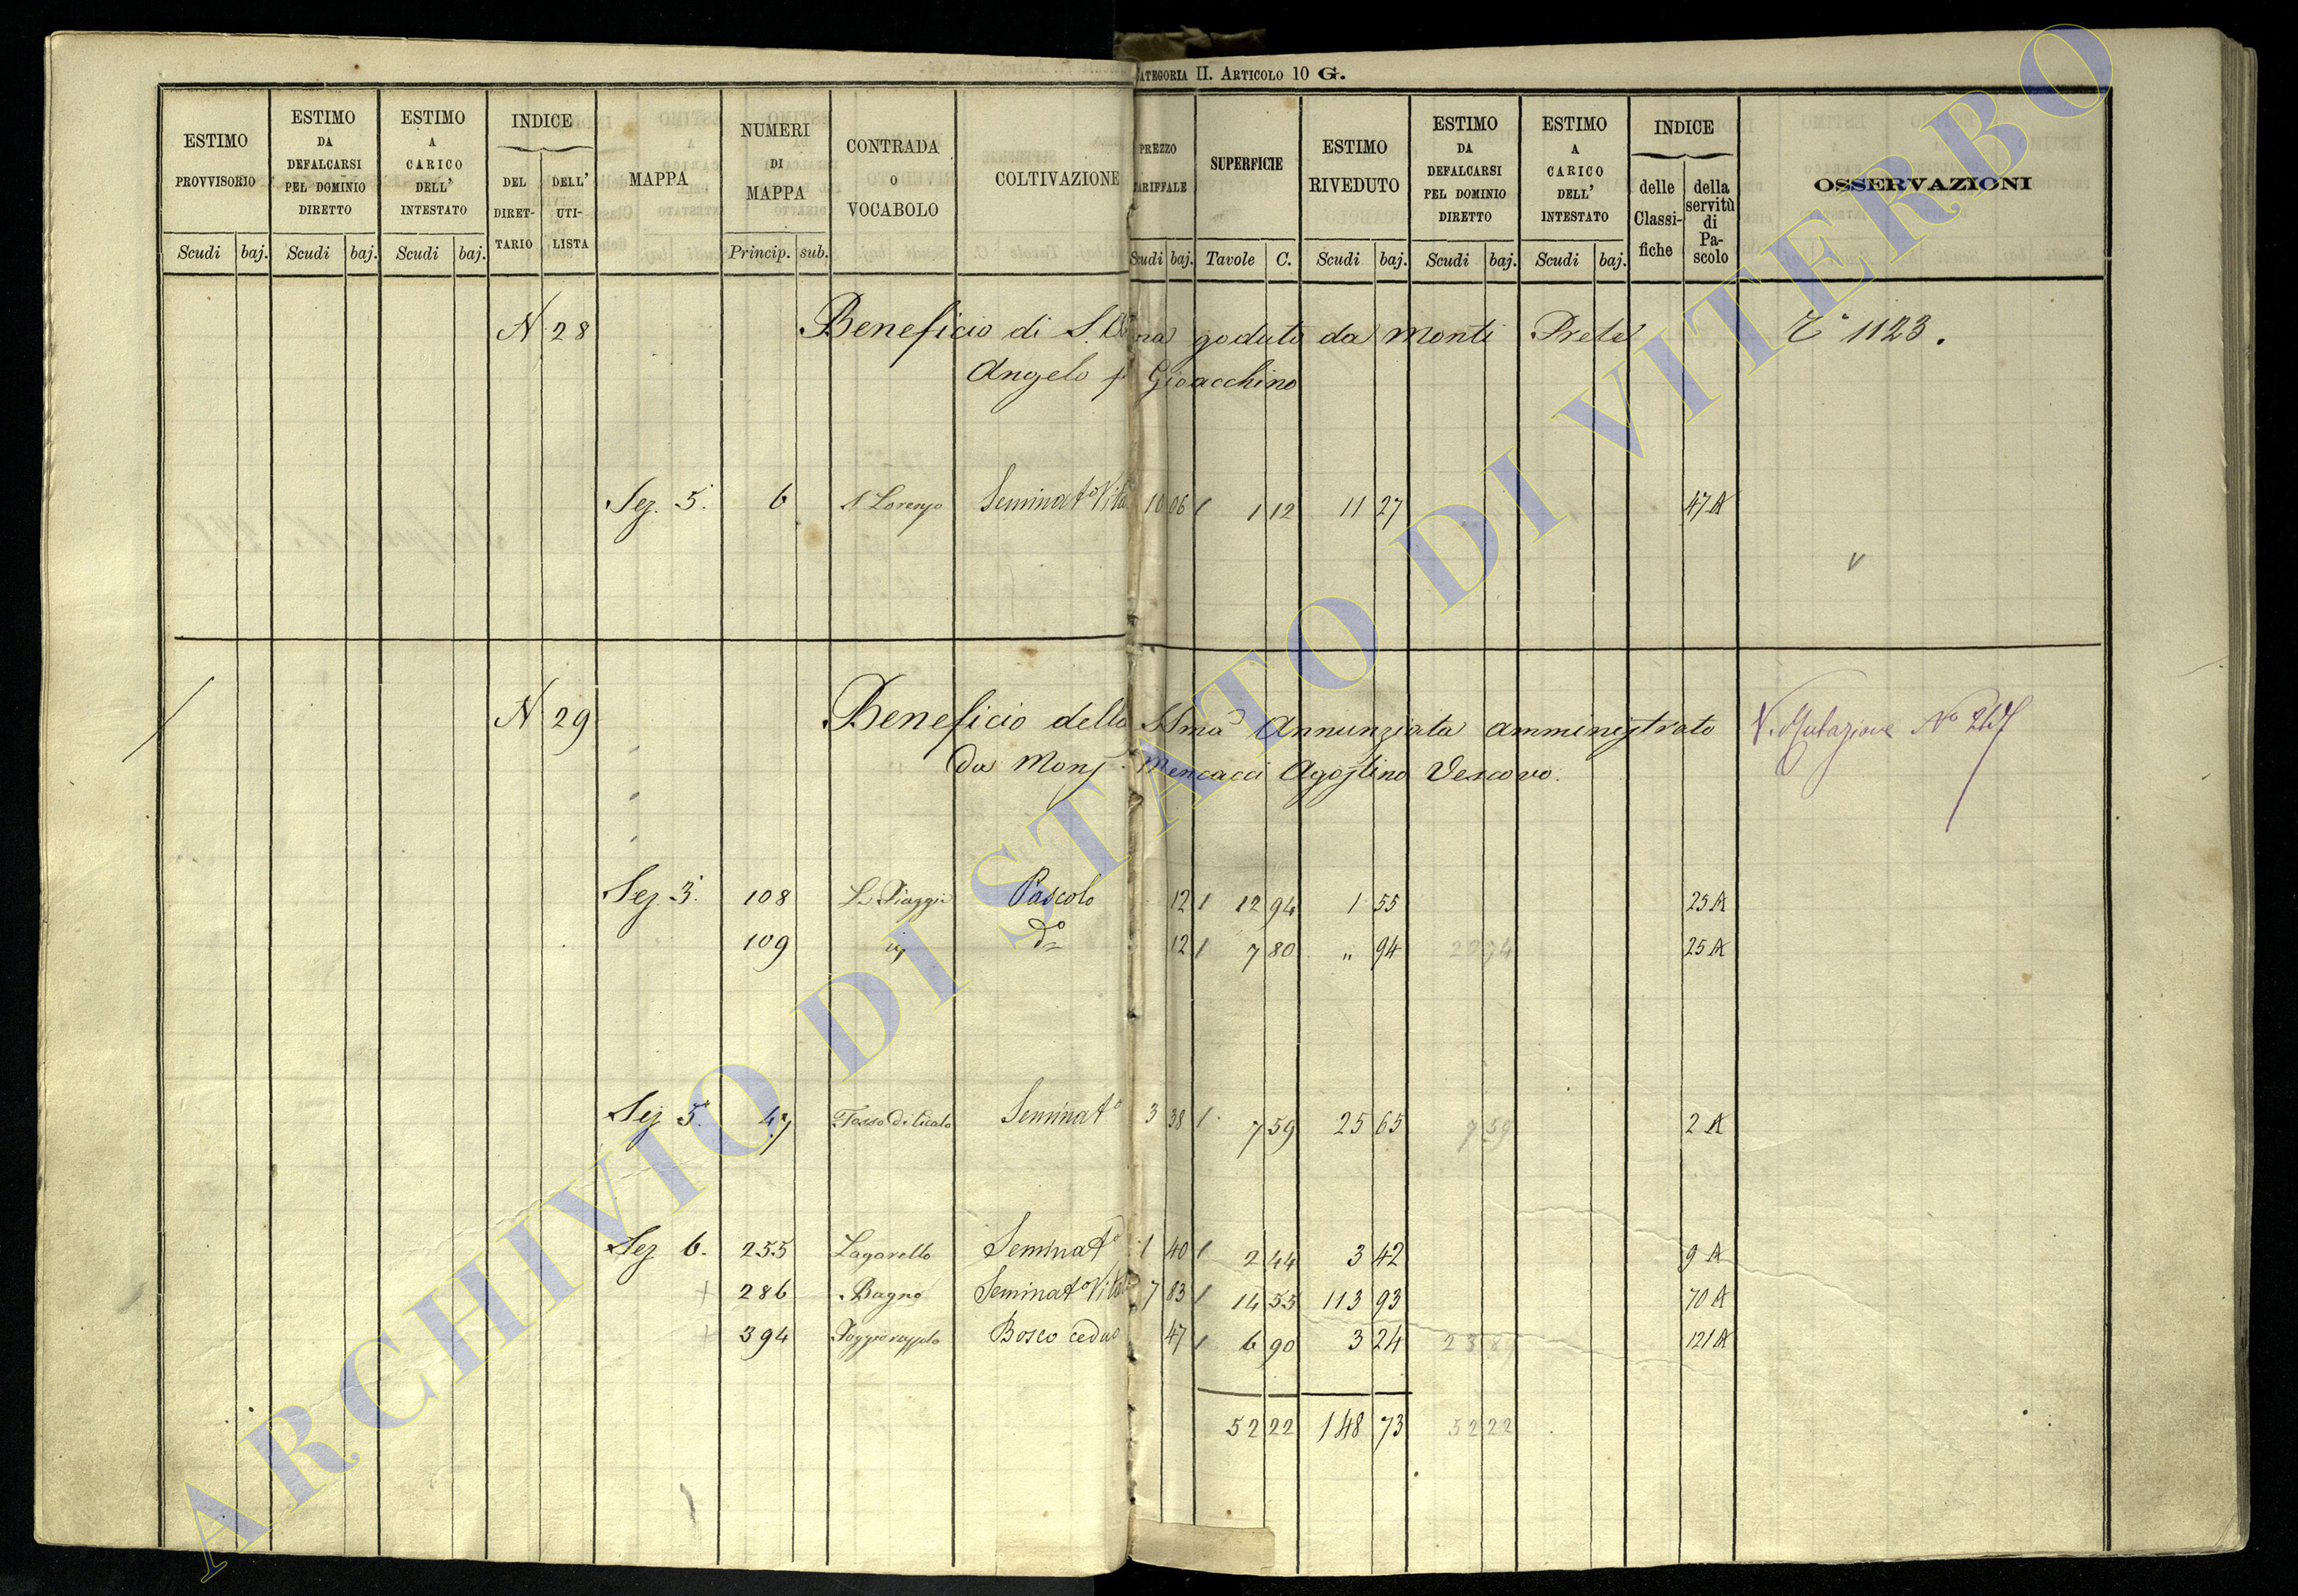 CATEGORIA II. ARTICOLO 10 G.
ESTIMO PROVVISORIO Scudi baj.
ESTIMO DA DEFALCARSI PEL DOMINIO DIRETTO Scudi baj.
ESTIMO A CARICO DELL' INTESTATO Scudi baj.
INDICE DEL DIRETTARIO DELL' UTILISTA
MAPPA
NUMERI DI MAPPA Princip. sub.
CONTRADA O VOCABOLO
COLTIVAZIONE
PREZZO TARIFFALE Scudi baj.
SUPERFICIE Tavole C.
ESTIMO RIVEDUTO Scudi baj.
ESTIMO DA DEFALCARSI PEL DOMINIO DIRETTO Scudi baj.
ESTIMO A CARICO DELL' INTESTATO Scudi baj.
INDICE delle Classifiche della servitù di Pascolo
OSSERVAZIONI
N 28 Beneficio di S. goduto da Monti Prete 1123.
Angelo Gioacchino
Sez. 5. 6 S Lorenzo Seminato Vitato 10 06 1 1 12 11 27 47 A
N 29 Beneficio della SSma Annunziata amministrato V. Mutazione No
da Mons. Mencacci Agostino Vescovo.
Sez. 3. 108 Le Piaggie Pascolo 12 1 12 94 1 55 25 A
109 do 12 1 7 80 " 94 20 74 25 A
Sez 5. 47 Seminato 3 38 1 7 59 25 65 7 59 2 A
Sez 6. 255 Lagarello Seminato 1 40 1 2 44 3 42 9 A
286 Bagno Seminato Vitato 7 83 1 14 55 113 93 70 A
394 Bosco ceduo 47 1 6 90 3 24 23 89 121 A
52 22 148 73 52 22
ARCHIVIO DI STATO DI VITERBO